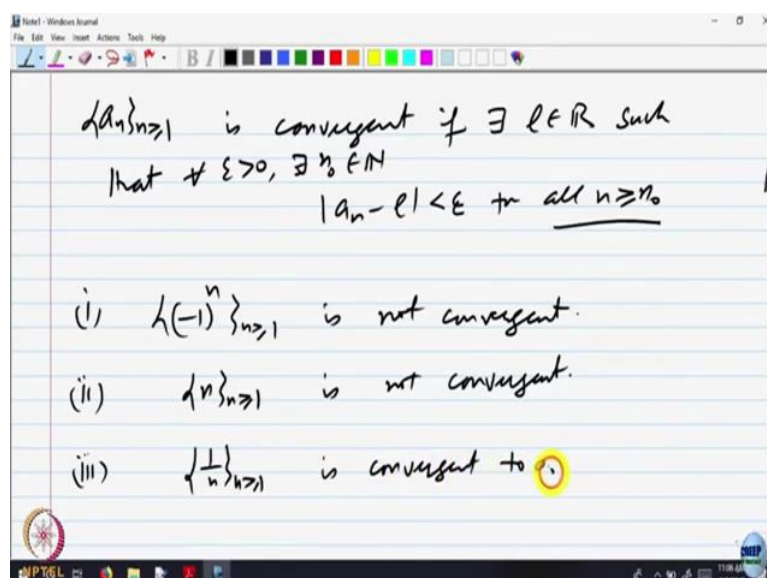 Note1 - Windows Journal
File Edit View Insert Actions Tools Help
B I
{aₙ}ₙ≥₁ is convergent if ∃ l ∈ ℝ such
that ∀ ε>0, ∃ n₀ ∈ ℕ
|aₙ - l| < ε for all n ≥ n₀
(i) {(-1)ⁿ}ₙ≥₁ is not convergent.
(ii) {n}ₙ≥₁ is not convergent.
(iii) {1/n}ₙ≥₁ is convergent to 0.
NPTEL